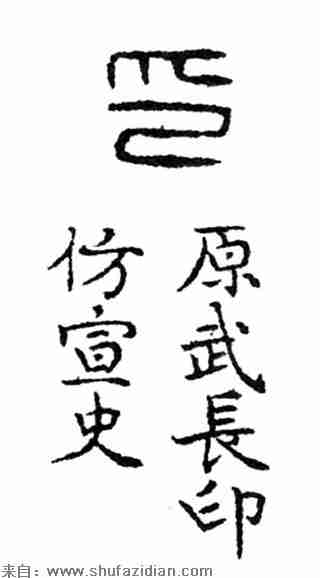 印
原武長印
仿宣史
来自：www.shufazidian.com